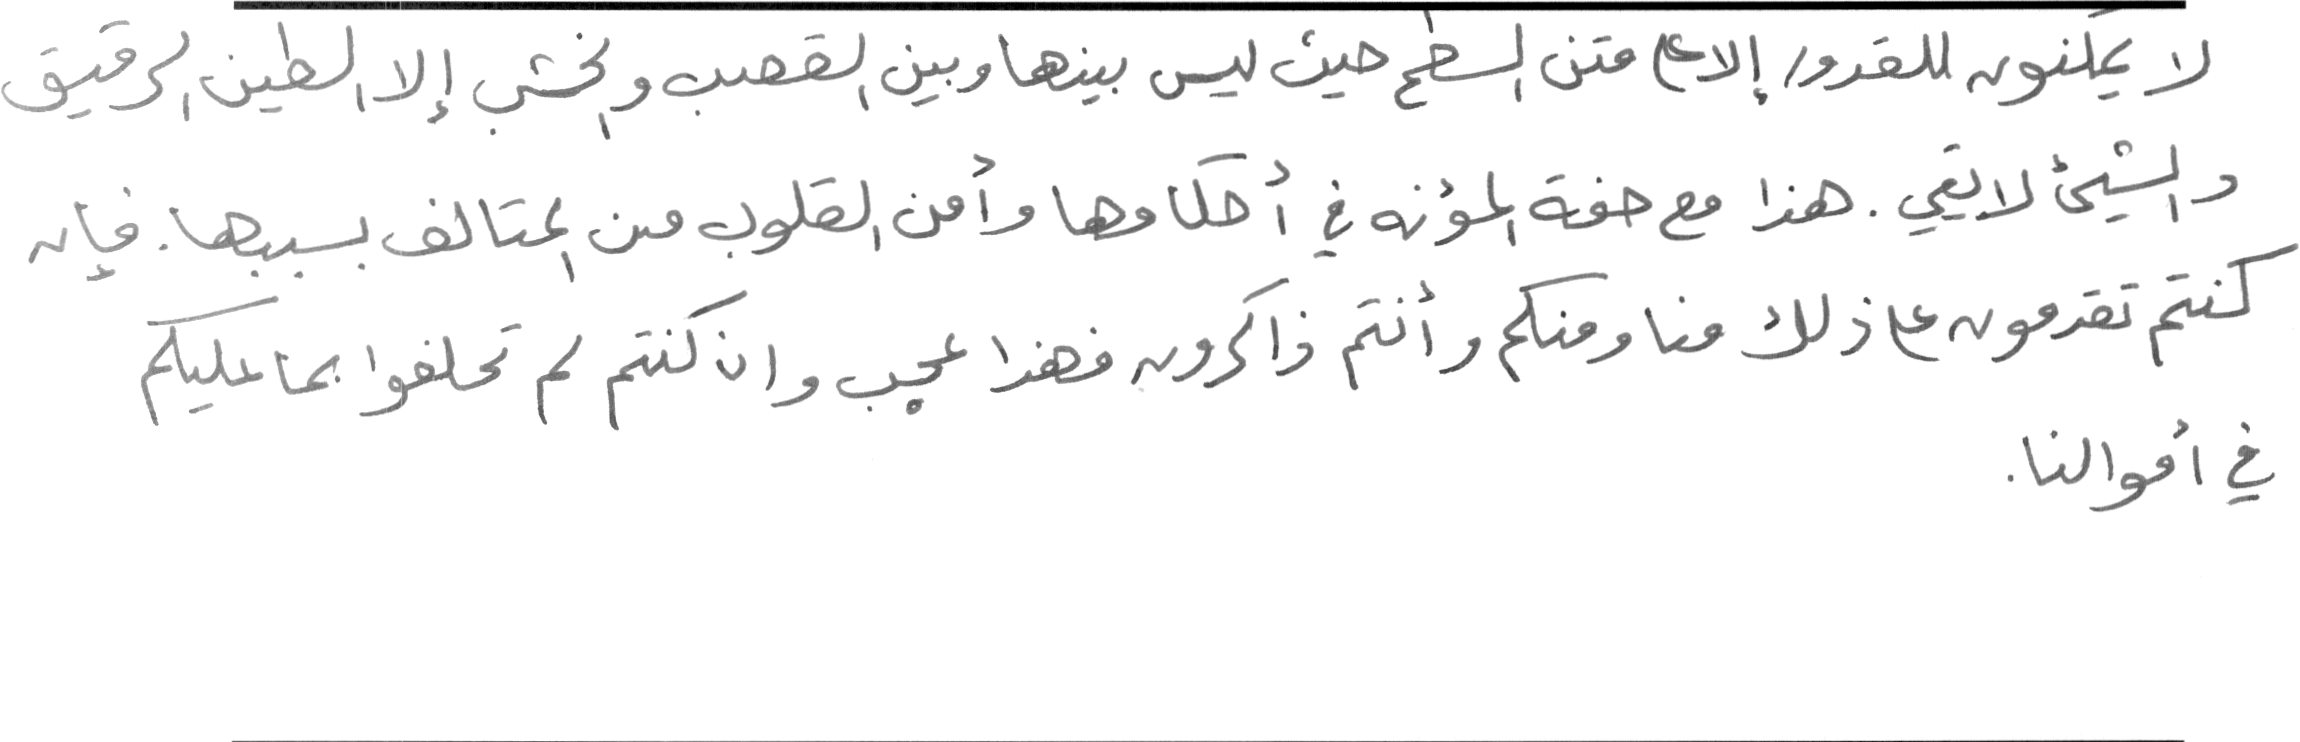 لا يمكنون للقدور إلا على متن السطح حيث ليس بينها وبين القصب والخشب إلا الطين الرقيق
والشيئ لا يقي . هذا مع خفة المؤنه في أحكامها وأمن القلوب من المتالف بسببها . فإن
كنتم تقدمون على ذلك منا ومنكم وأنتم ذاكرون فهذا عجيب وان كنتم لم تحلفوا بما عليكم
في أموالنا .